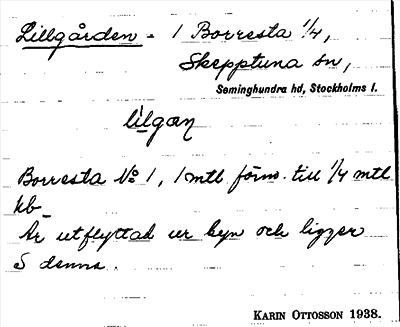 Lillgården - 1 Borresta 1/4,
Skepptuna sn,
Seminghundra hd, Stockholms l.
lilgan
Borresta № 1, 1 mtl förm. till 1/4 mtl
kb
Är utflyttad ur byn och ligger
S denna.
KARIN OTTOSSON 1938.